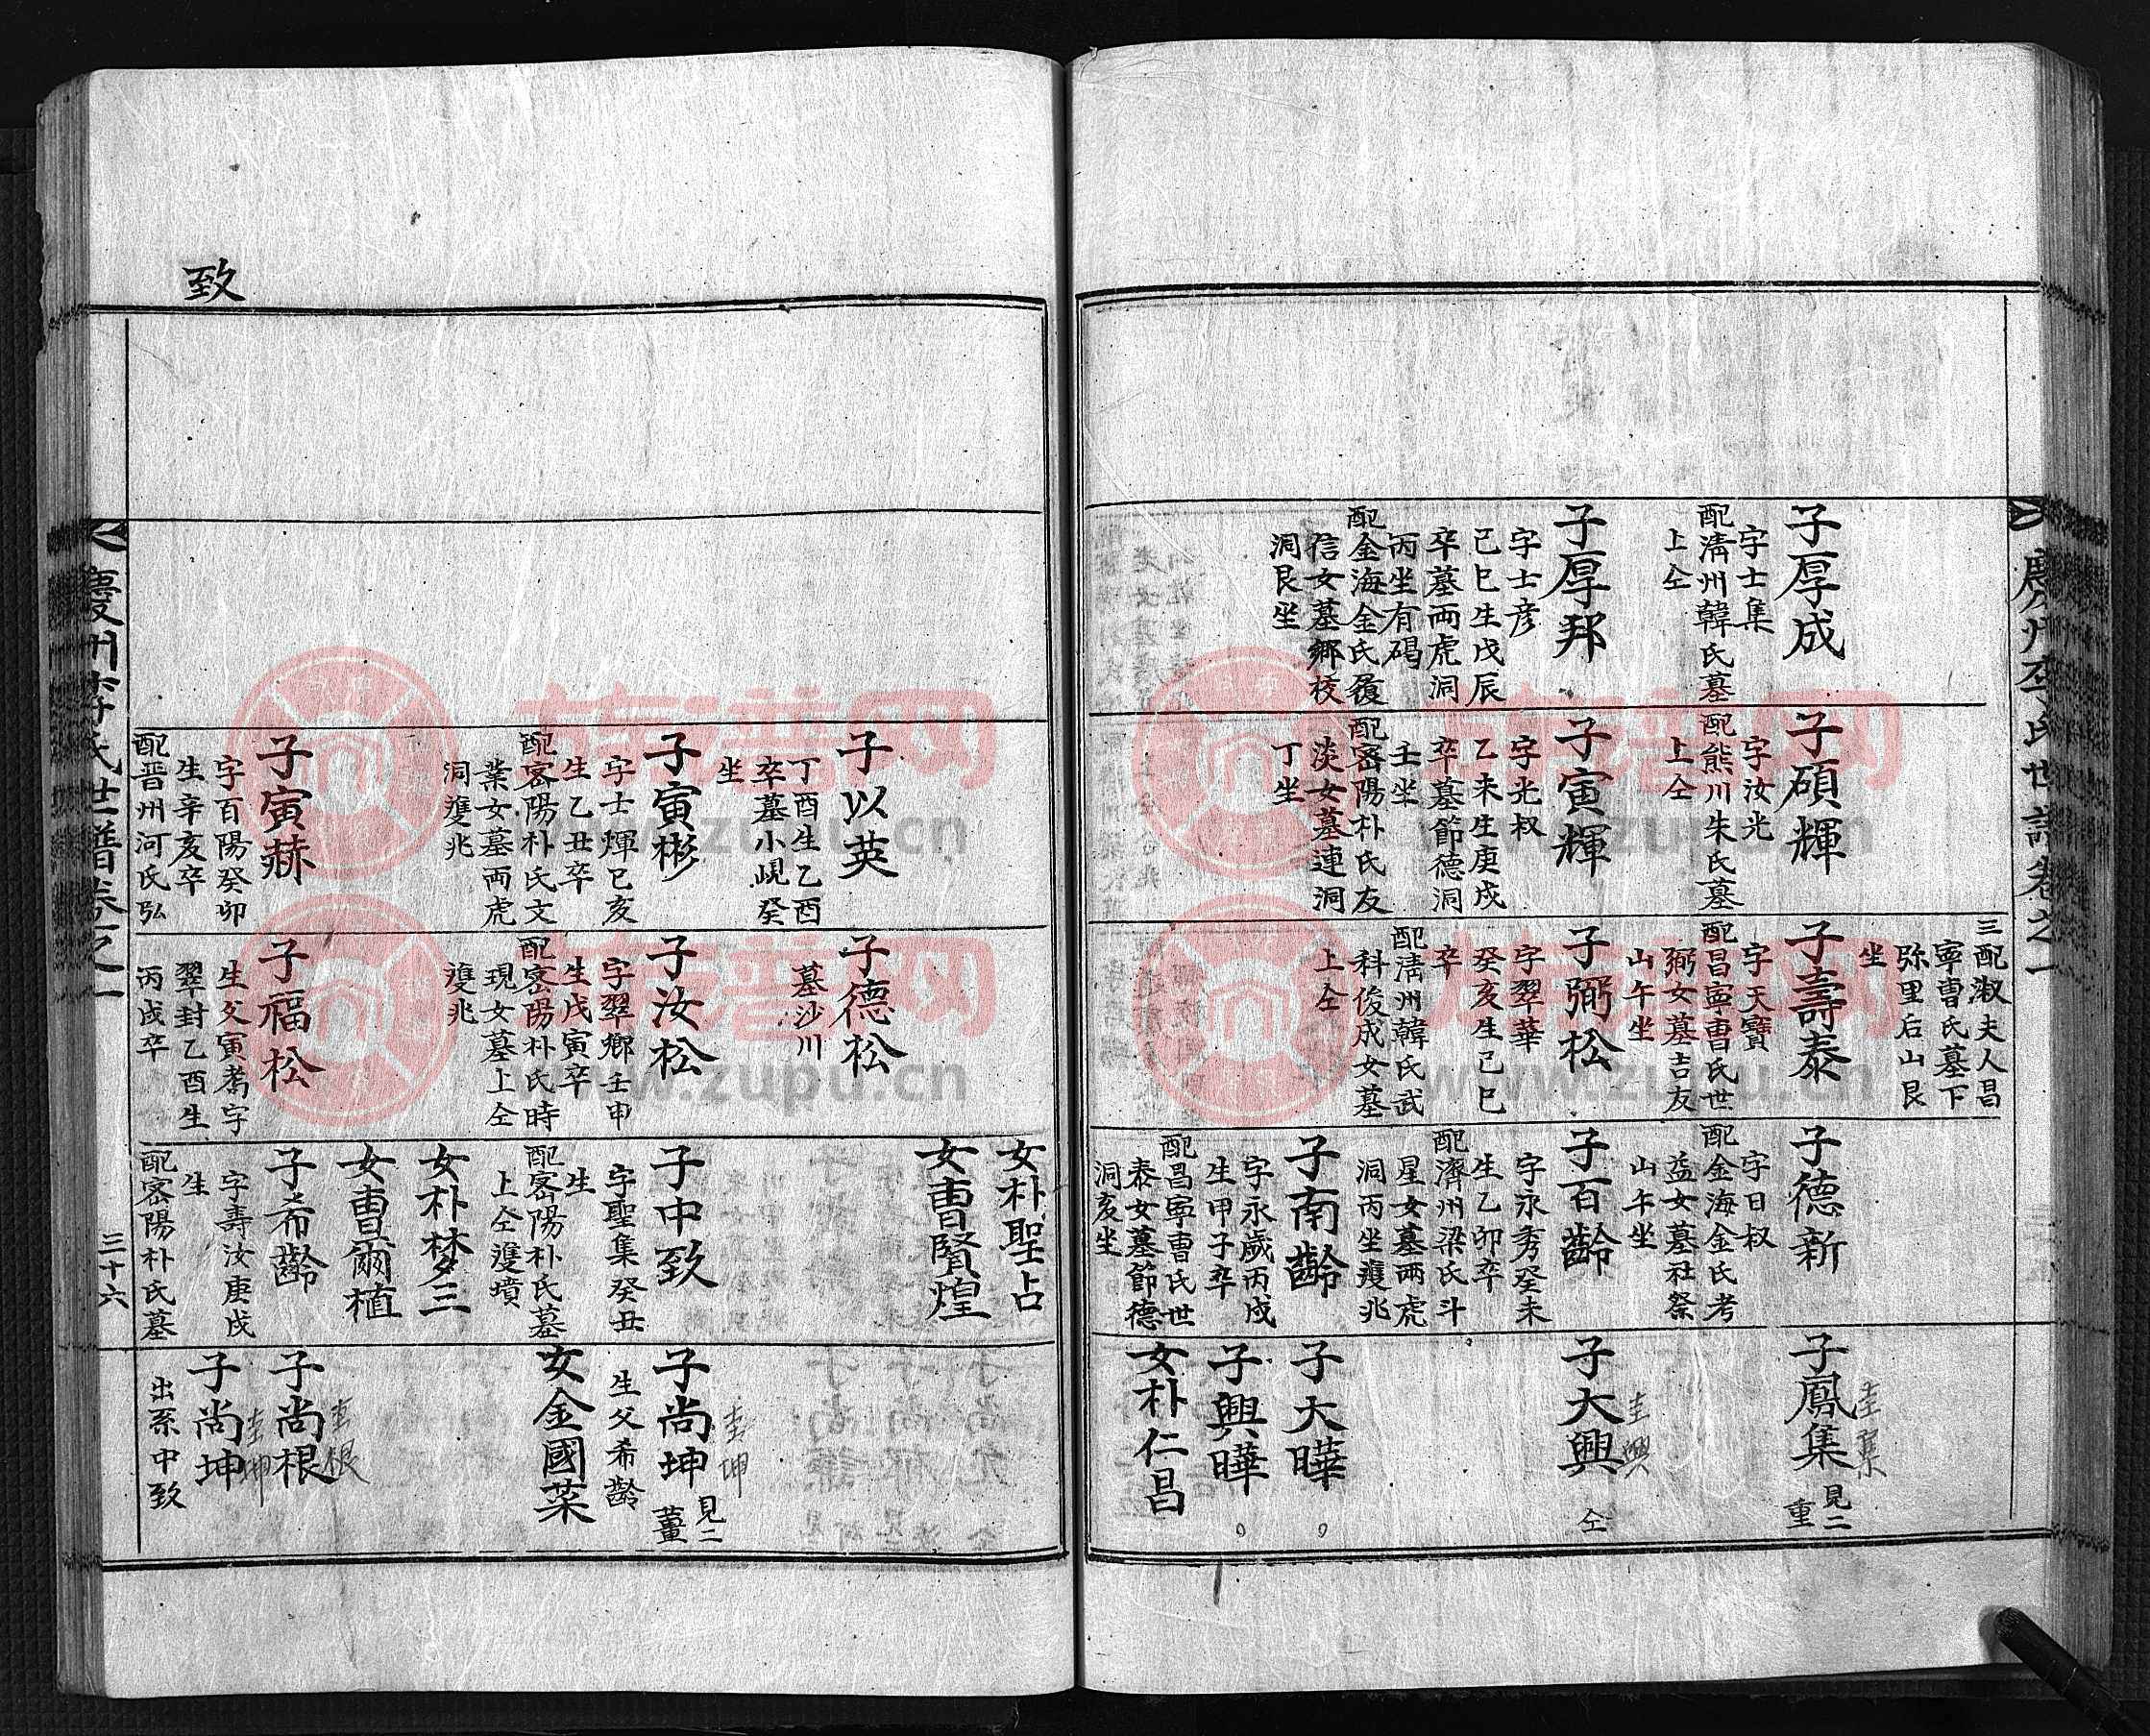 慶州李氏世譜卷之一
子厚成
字士集
配淸州韓氏墓
上仝
子厚邦
字士彦
己巳生戊辰
卒墓两虎洞
丙坐有碣
配金海金氏
信女墓鄉校
洞艮坐
子碩輝
字汝光
配熊川朱氏墓
上仝
子寅輝
字光叔
乙未生庚戌
卒墓節德洞
壬坐
配密陽朴氏友
淡女墓蓮洞
丁坐
三配淑夫人昌
寧曺氏墓下
弥里后山艮
坐
子壽泰
字天寶
配昌寧曺氏世
弼女墓吉友
山午坐
子弼松
字翠華
癸亥生己巳
卒
配淸州韓氏武
科俊成女墓
上仝
子德新
字日叔
配金海金氏考
益女墓社祭
山午坐
子百齡
字永秀癸未
生乙卯卒
配濟州梁氏斗
星女墓两虎
洞丙坐雙兆
子南齡
字永歲丙戌
生甲子卒
配昌寧曺氏世
泰女墓節德
洞亥坐
子鳳集
見二
重
圭集
子大興
圭興
仝
子大曄
子興曄
女朴仁昌
致
子以英
丁酉生乙酉
卒墓小峴癸
坐
子寅彬
字士煇己亥
生乙丑卒
配密陽朴氏文
業女墓两虎
洞雙兆
子寅赫
字百陽癸卯
生辛亥卒
配晋州河氏弘
子德松
墓沙川
子汝松
字翠鄉壬申
生戊寅卒
配密陽朴氏時
現女墓上仝
雙兆
子福松
生父寅馣字
翠封乙酉生
丙戌卒
女朴聖占
女曺賢煌
子中致
字聖集癸丑
生
配密陽朴氏墓
上仝雙墳
女朴梦三
女曺爾植
子希齡
字壽汝庚戌
生
配密陽朴氏墓
子尚坤
見二
薑
圭坤
生父希齡
女金國菜
子尚根
圭根
子尚坤
圭坤
出系中致
慶州李氏世譜卷之一
三十六
族谱网
www.zupu.cn
族谱网
www.zupu.cn
族谱网
www.zupu.cn
族谱网
www.zupu.cn